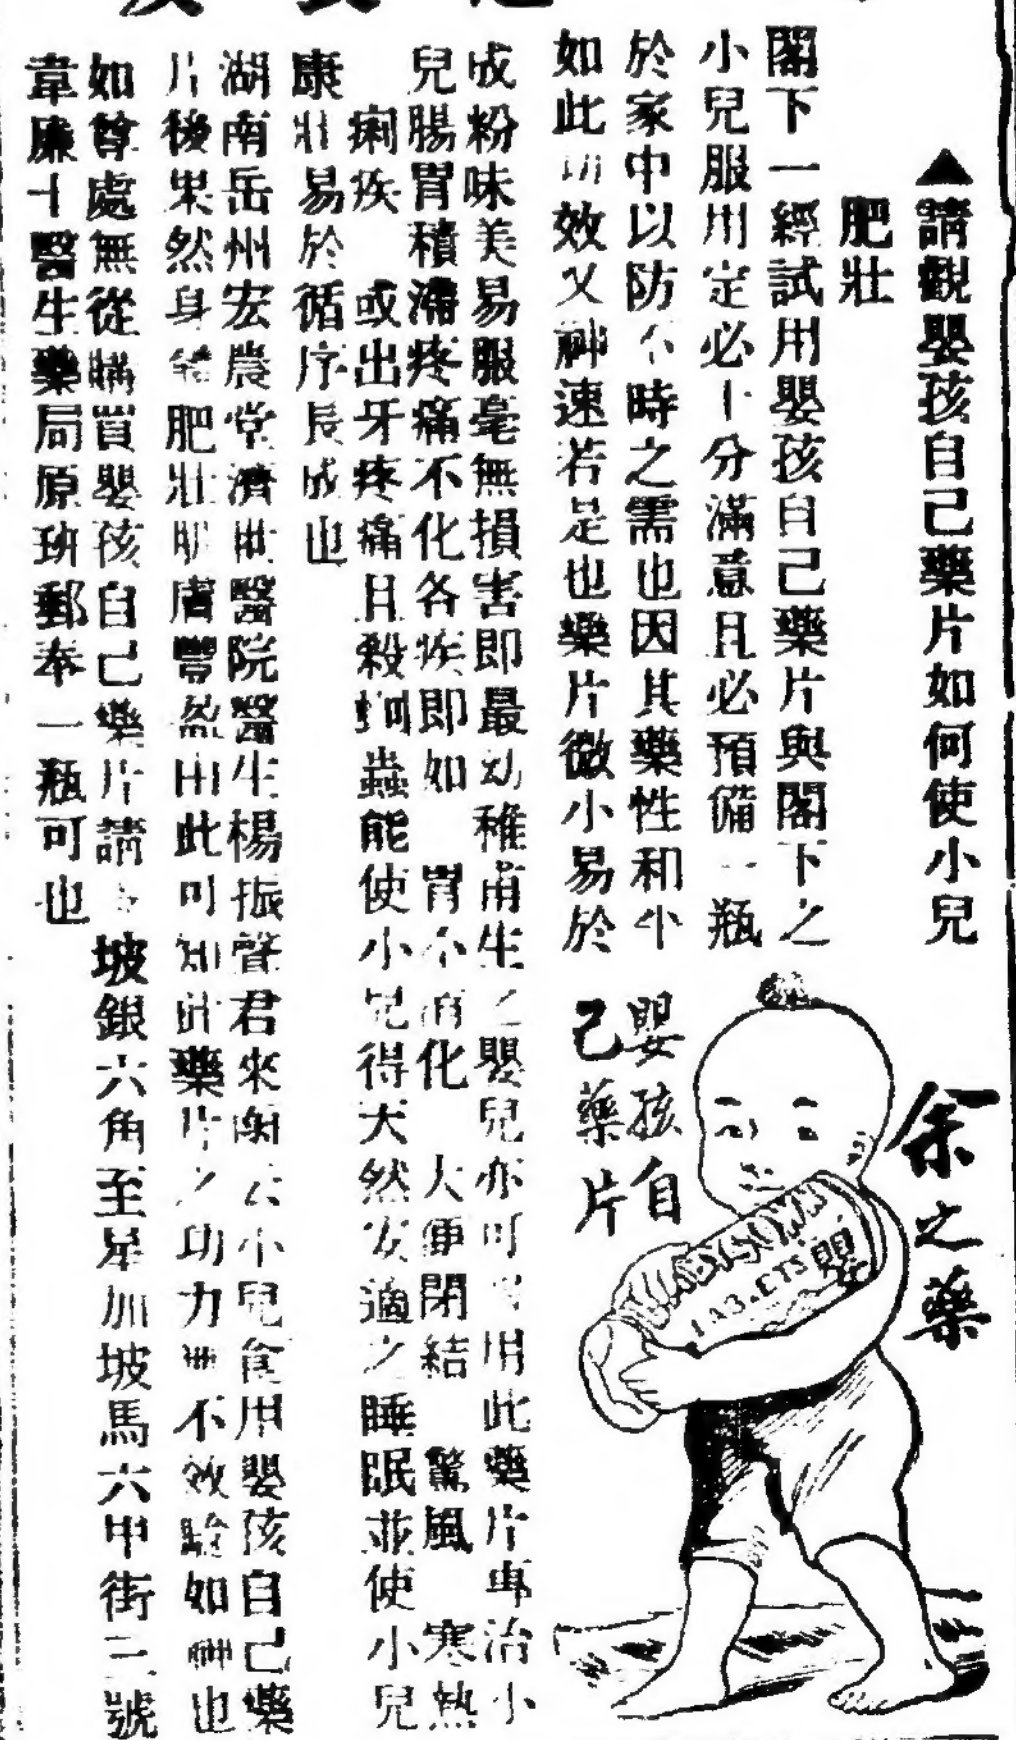 ▲請觀嬰孩自己藥片如何使小兒
肥壯
閣下一經試用嬰孩自己藥片與閣下之
小兒服用定必十分滿意且必預備一瓶
於家中以防不時之需也因其藥性和平
如此功效又神速若是也藥片微小易於
成粉味美易服毫無損害即最幼稚甫生之嬰兒亦可用此藥片專治小
兒腸胃積滯疼痛不化各疾即如 胃不消化 大便閉結 驚風 寒熱
痢疾 或出牙疼痛且殺蛔蟲能使小兒得天然安適之睡眠並使小兒
康壯易於循序長成也
湖南岳州宏農堂濟世醫院醫生楊振聲君來函云小兒食用嬰孩自己藥
片後果然身體肥壯肌膚豐盈由此可知此藥片之功力無不效驗如神也
如尊處無從購買嬰孩自己藥片請寄坡銀六角至星加坡馬六甲街二號
韋廉士醫生藥局原班郵奉一瓶可也
余之藥
BABY'S OWN
TABLETS
嬰
嬰孩自
己藥片